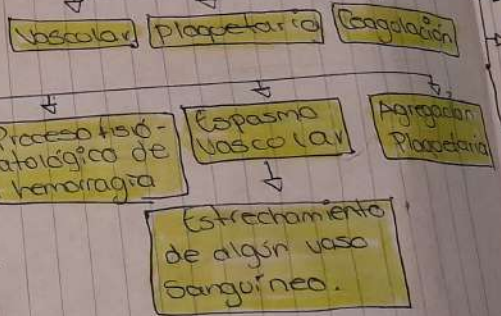 Vascular
Plaquetario
Coagolación
Proceso fisio-
patológico de
hemorragia
Espasmo
vascular
Agregación
Plaquetaria
Estrechamiento
de algún vaso
Sanguíneo.